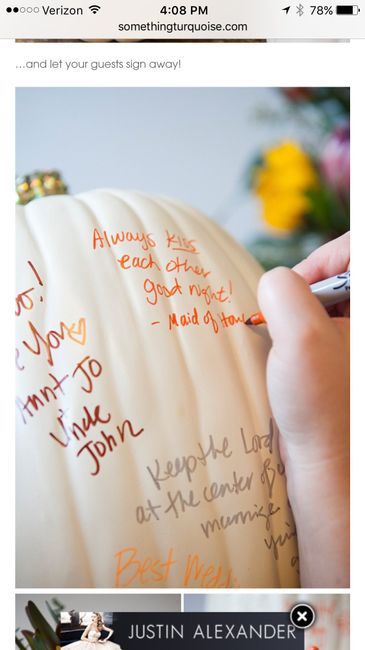 Verizon 4:08 PM 78%
somethingturquoise.com
...and let your guests sign away!
Always kiss
each other
good night!
- Maid of Hon
You
Aunt Jo
Uncle
John
Keep the Lord
at the center of
marriage
Best
JUSTIN ALEXANDER